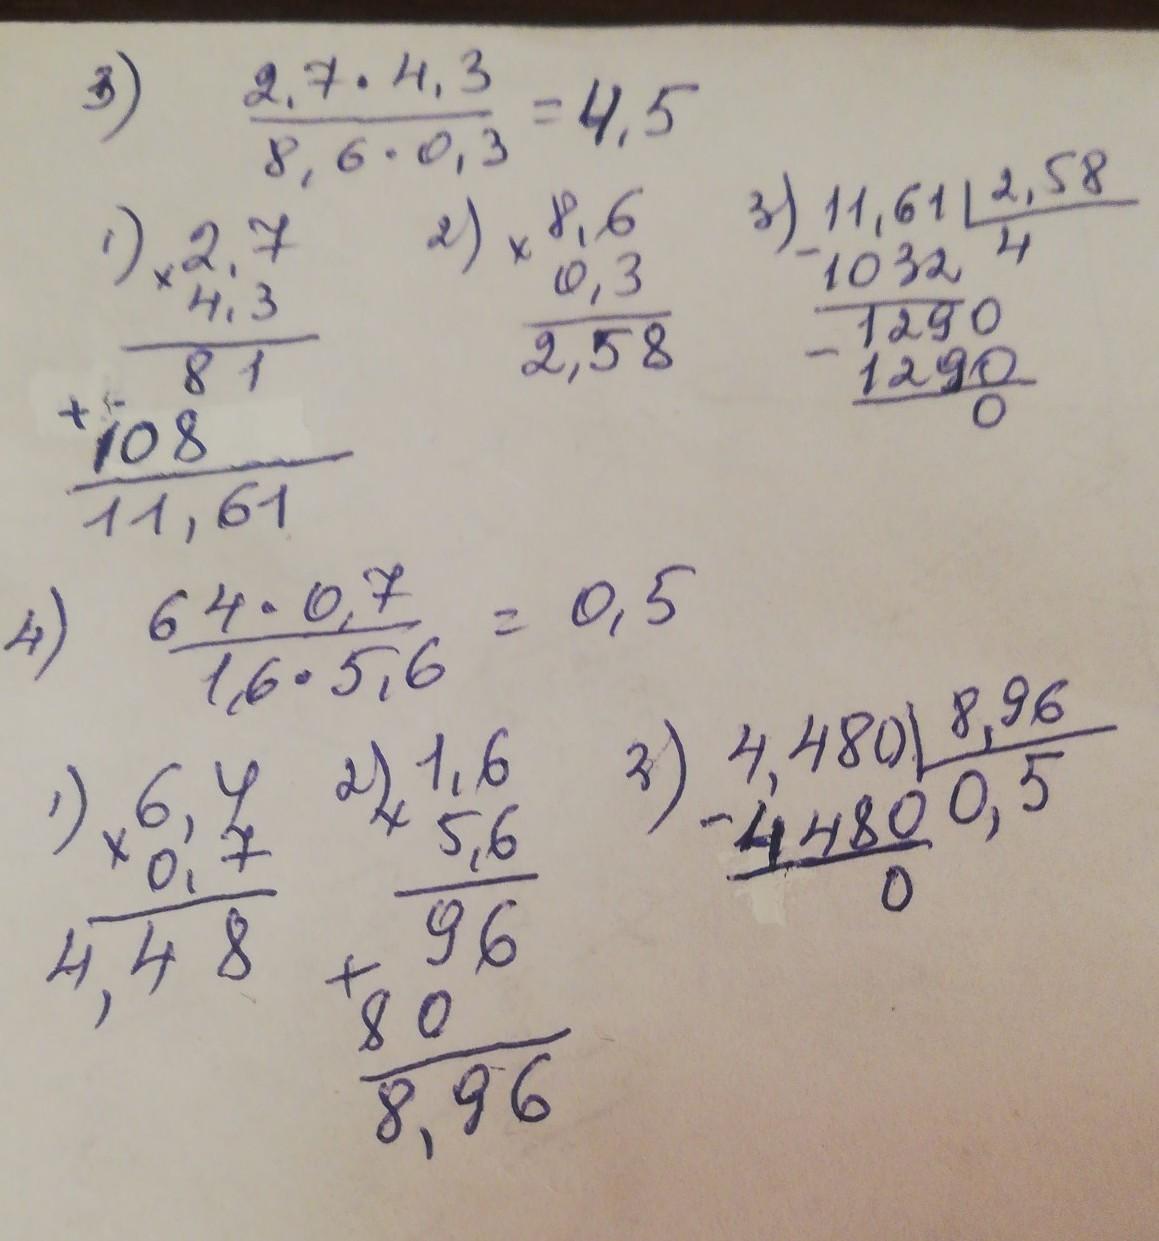 3) 2,7 · 4,3 / 8,6 · 0,3 = 4,5
1) × 2,7
4,3
81
+ 108
11,61
2) × 8,6
0,3
2,58
3) 11,61 | 2,58
- 1032 4
1290
- 1290
0
4) 64 · 0,7 / 1,6 · 5,6 = 0,5
1) × 6,4
0,7
4,48
2) × 1,6
5,6
96
+ 80
8,96
3) 4,480 | 8,96
- 4480 0,5
0